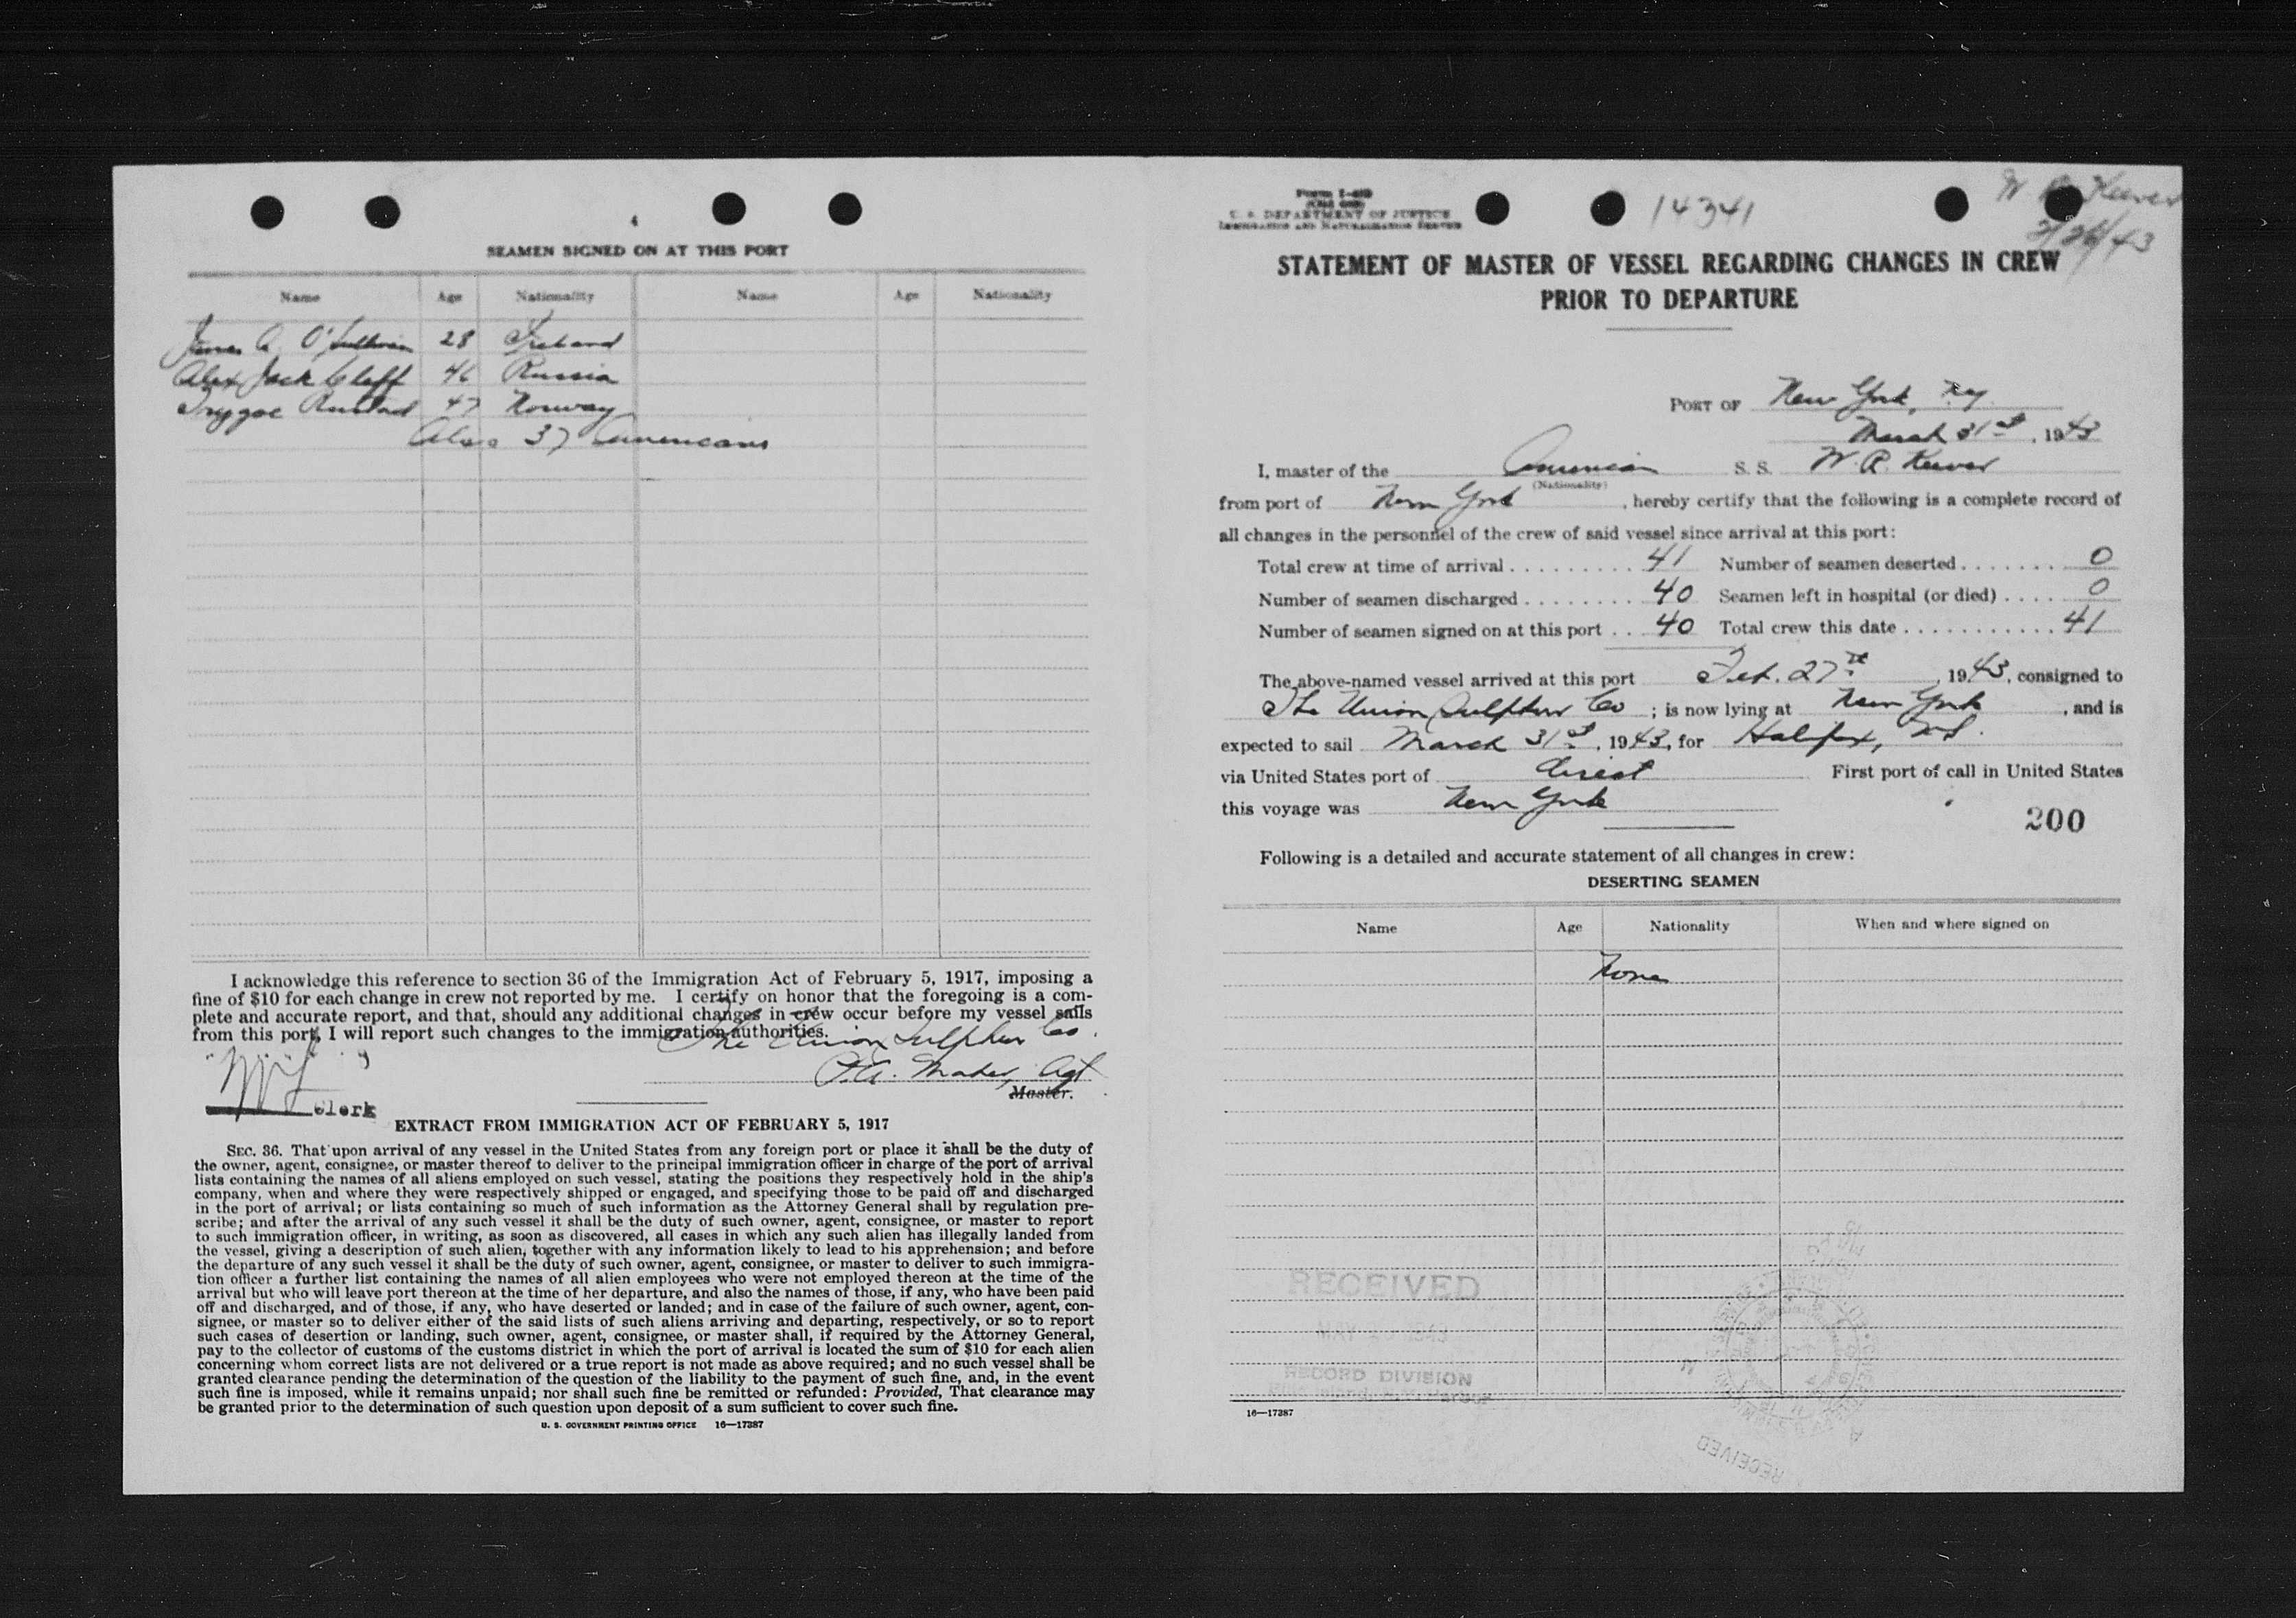 4
SEAMEN SIGNED ON AT THIS PORT
Name Age Nationality Name Age Nationality
James A. O'Sullivan 28 Ireland
Alex Jack Cleff 46 Russia
Tryggve 47 Norway
Also 37 Americans
I acknowledge this reference to section 36 of the Immigration Act of February 5, 1917, imposing a
fine of $10 for each change in crew not reported by me. I certify on honor that the foregoing is a com-
plete and accurate report, and that, should any additional changes in crew occur before my vessel sails
from this port, I will report such changes to the immigration authorities.
The Union Sulphur Co.
P.A. Maher, Agt
Master.
Clerk
EXTRACT FROM IMMIGRATION ACT OF FEBRUARY 5, 1917
SEC. 36. That upon arrival of any vessel in the United States from any foreign port or place it shall be the duty of
the owner, agent, consignee, or master thereof to deliver to the principal immigration officer in charge of the port of arrival
lists containing the names of all aliens employed on such vessel, stating the positions they respectively hold in the ship's
company, when and where they were respectively shipped or engaged, and specifying those to be paid off and discharged
in the port of arrival; or lists containing so much of such information as the Attorney General shall by regulation pre-
scribe; and after the arrival of any such vessel it shall be the duty of such owner, agent, consignee, or master to report
to such immigration officer, in writing, as soon as discovered, all cases in which any such alien has illegally landed from
the vessel, giving a description of such alien, together with any information likely to lead to his apprehension; and before
the departure of any such vessel it shall be the duty of such owner, agent, consignee, or master to deliver to such immigra-
tion officer a further list containing the names of all alien employees who were not employed thereon at the time of the
arrival but who will leave port thereon at the time of her departure, and also the names of those, if any, who have been paid
off and discharged, and of those, if any, who have deserted or landed; and in case of the failure of such owner, agent, con-
signee, or master so to deliver either of the said lists of such aliens arriving and departing, respectively, or so to report
such cases of desertion or landing, such owner, agent, consignee, or master shall, if required by the Attorney General,
pay to the collector of customs of the customs district in which the port of arrival is located the sum of $10 for each alien
concerning whom correct lists are not delivered or a true report is not made as above required; and no such vessel shall be
granted clearance pending the determination of the question of the liability to the payment of such fine, and, in the event
such fine is imposed, while it remains unpaid; nor shall such fine be remitted or refunded: Provided, That clearance may
be granted prior to the determination of such question upon deposit of a sum sufficient to cover such fine.
U. S. GOVERNMENT PRINTING OFFICE 16—17387
U. S. DEPARTMENT OF JUSTICE
IMMIGRATION AND NATURALIZATION SERVICE
14341
W R Keever
3/26/43
STATEMENT OF MASTER OF VESSEL REGARDING CHANGES IN CREW
PRIOR TO DEPARTURE
PORT OF New York, N.Y.
March 31st, 1943
I, master of the American S. S. W. R. Keever
(Nationality)
from port of New York, hereby certify that the following is a complete record of
all changes in the personnel of the crew of said vessel since arrival at this port:
Total crew at time of arrival 41 Number of seamen deserted 0
Number of seamen discharged 40 Seamen left in hospital (or died) 0
Number of seamen signed on at this port 40 Total crew this date 41
The above-named vessel arrived at this port Feb. 27th, 1943, consigned to
The Union Sulphur Co; is now lying at New York, and is
expected to sail March 31st, 1943, for Halifax, N.S.
via United States port of direct First port of call in United States
this voyage was New York
200
Following is a detailed and accurate statement of all changes in crew:
DESERTING SEAMEN
Name Age Nationality When and where signed on
None
RECEIVED
RECORD DIVISION
16—17387
RECEIVED